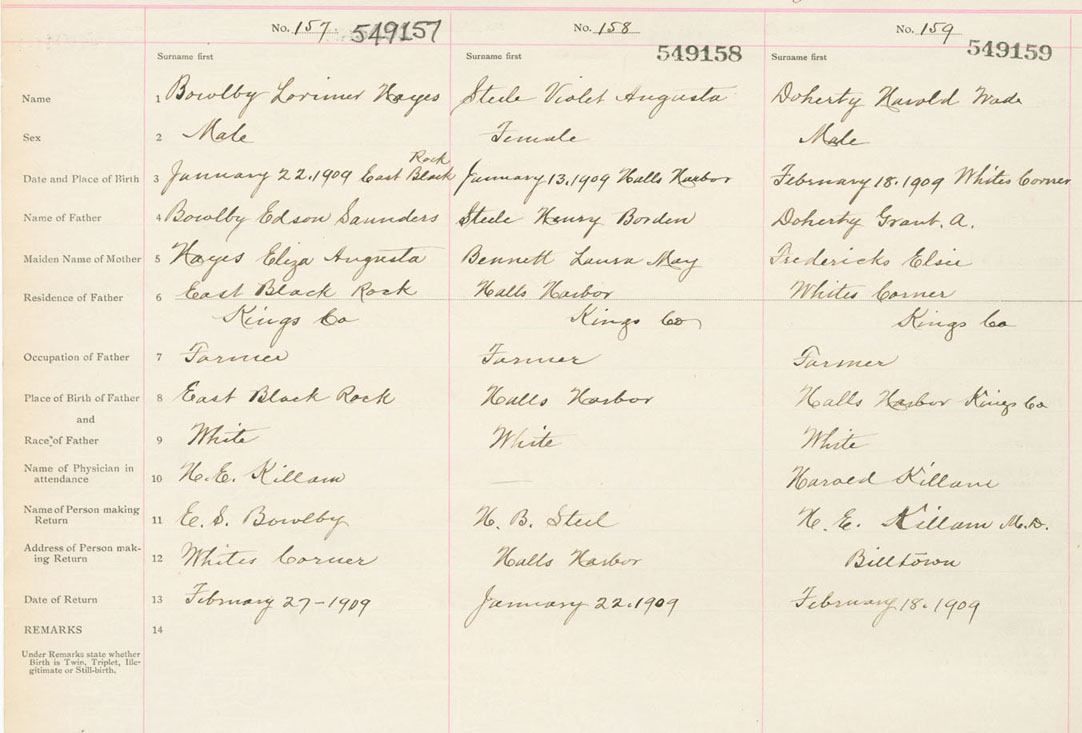 No. 157. 549157 No. 158 549158 No. 159 549159
Surname first Surname first Surname first
Name 1 Bowlby Lorimer Hayes Steele Violet Augusta Doherty Harold Wade
Sex 2 Male Female Male
Rock
Date and Place of Birth 3 January 22.1909 East Black January 13.1909 Halls Harbor February 18.1909 Whites Corner
Name of Father 4 Bowlby Edson Saunders Steele Henry Borden Doherty Grant. A.
Maiden Name of Mother 5 Hayes Eliza Augusta Bennett Laura May Fredericks Elsie
Residence of Father 6 East Black Rock Halls Harbor Whites Corner
Kings Co Kings Co Kings Co
Occupation of Father 7 Farmer Farmer Farmer
Place of Birth of Father 8 East Black Rock Halls Harbor Halls Harbor Kings Co
and
Race of Father 9 White White White
Name of Physician in
attendance 10 H.E. Killam — Harold Killam
Name of Person making
Return 11 E. S. Bowlby H. B. Steel H. E. Killam M.D.
Address of Person mak-
ing Return 12 Whites Corner Halls Harbor Billtown
Date of Return 13 February 27-1909 January 22.1909 February 18.1909
REMARKS 14
Under Remarks state whether
Birth is Twin, Triplet, Ille-
gitimate or Still-birth.